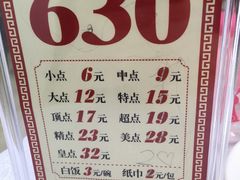 630
小点 6元 中点 9元
大点 12元 特点 15元
顶点 17元 超点 19元
精点 23元 美点 28元
皇点 32元
白饭 3元/碗 纸巾 2元/包